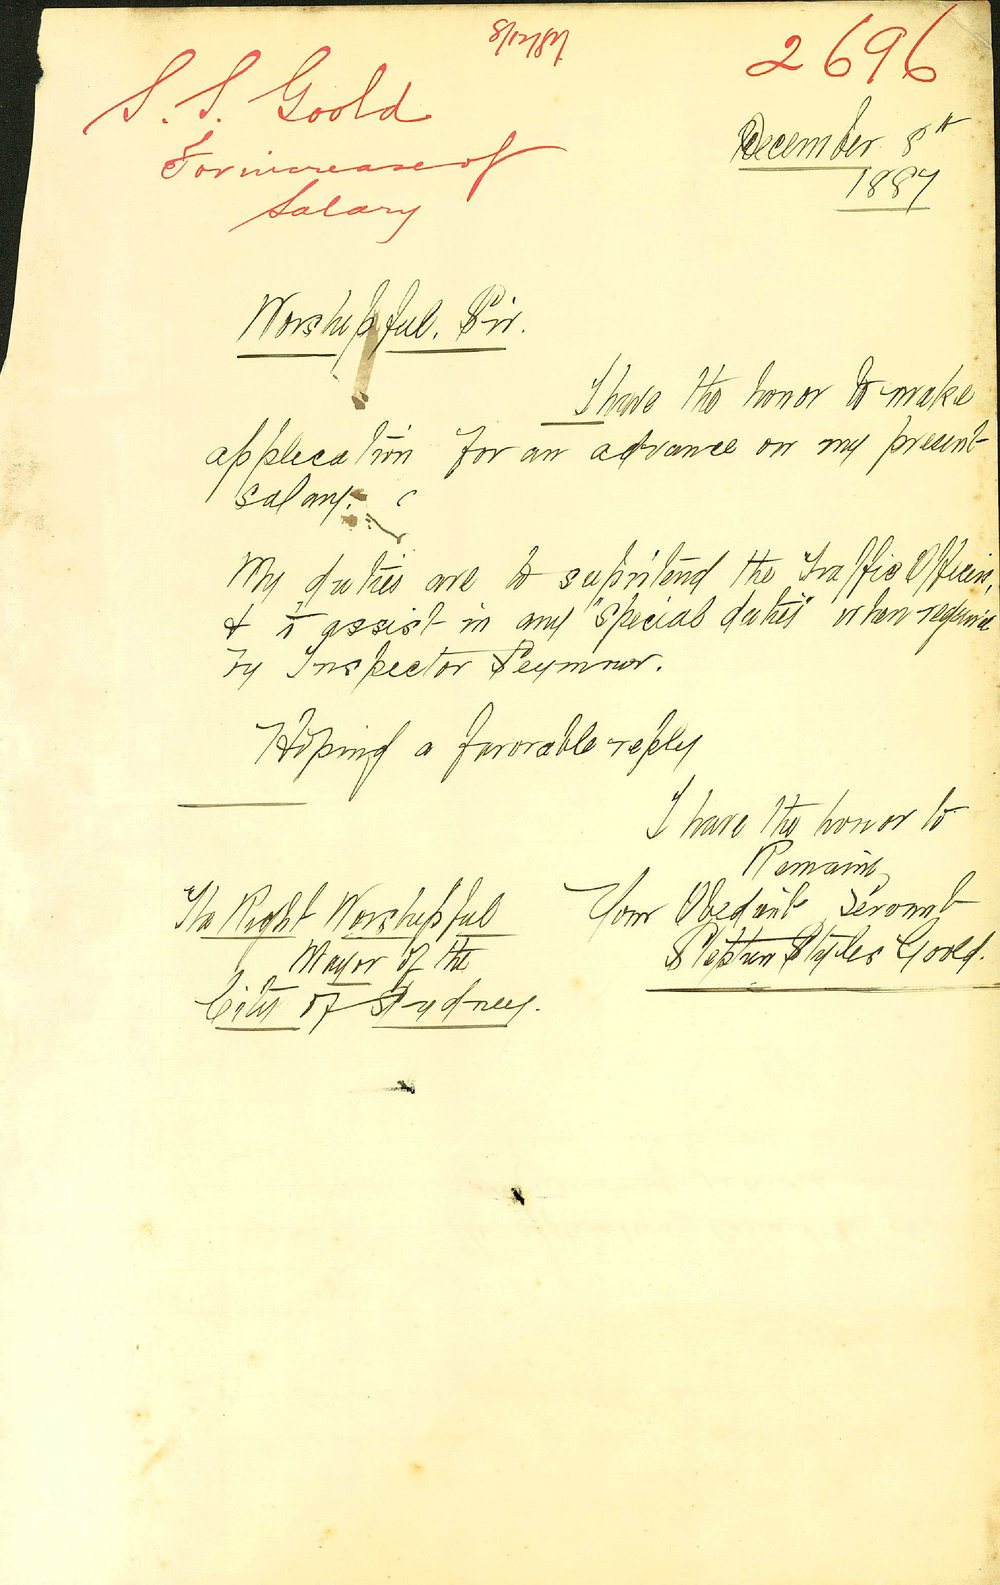 8/12/87
2696
S. S. Goold
For increase of
Salary
December 8th
1887
Worshipful. Sir.
I have the honor to make
application for an advance on my present
salary.
My duties are to suprintend the Traffic Officers,
& to assist in any "special duties" when required
by Inspector Seymour.
Hoping a favorable reply
I have the honor to
Remain,
Your Obediant Servant
Stephen Styles Goold.
The Right Worshipful
Mayor of the
City of Sydney.